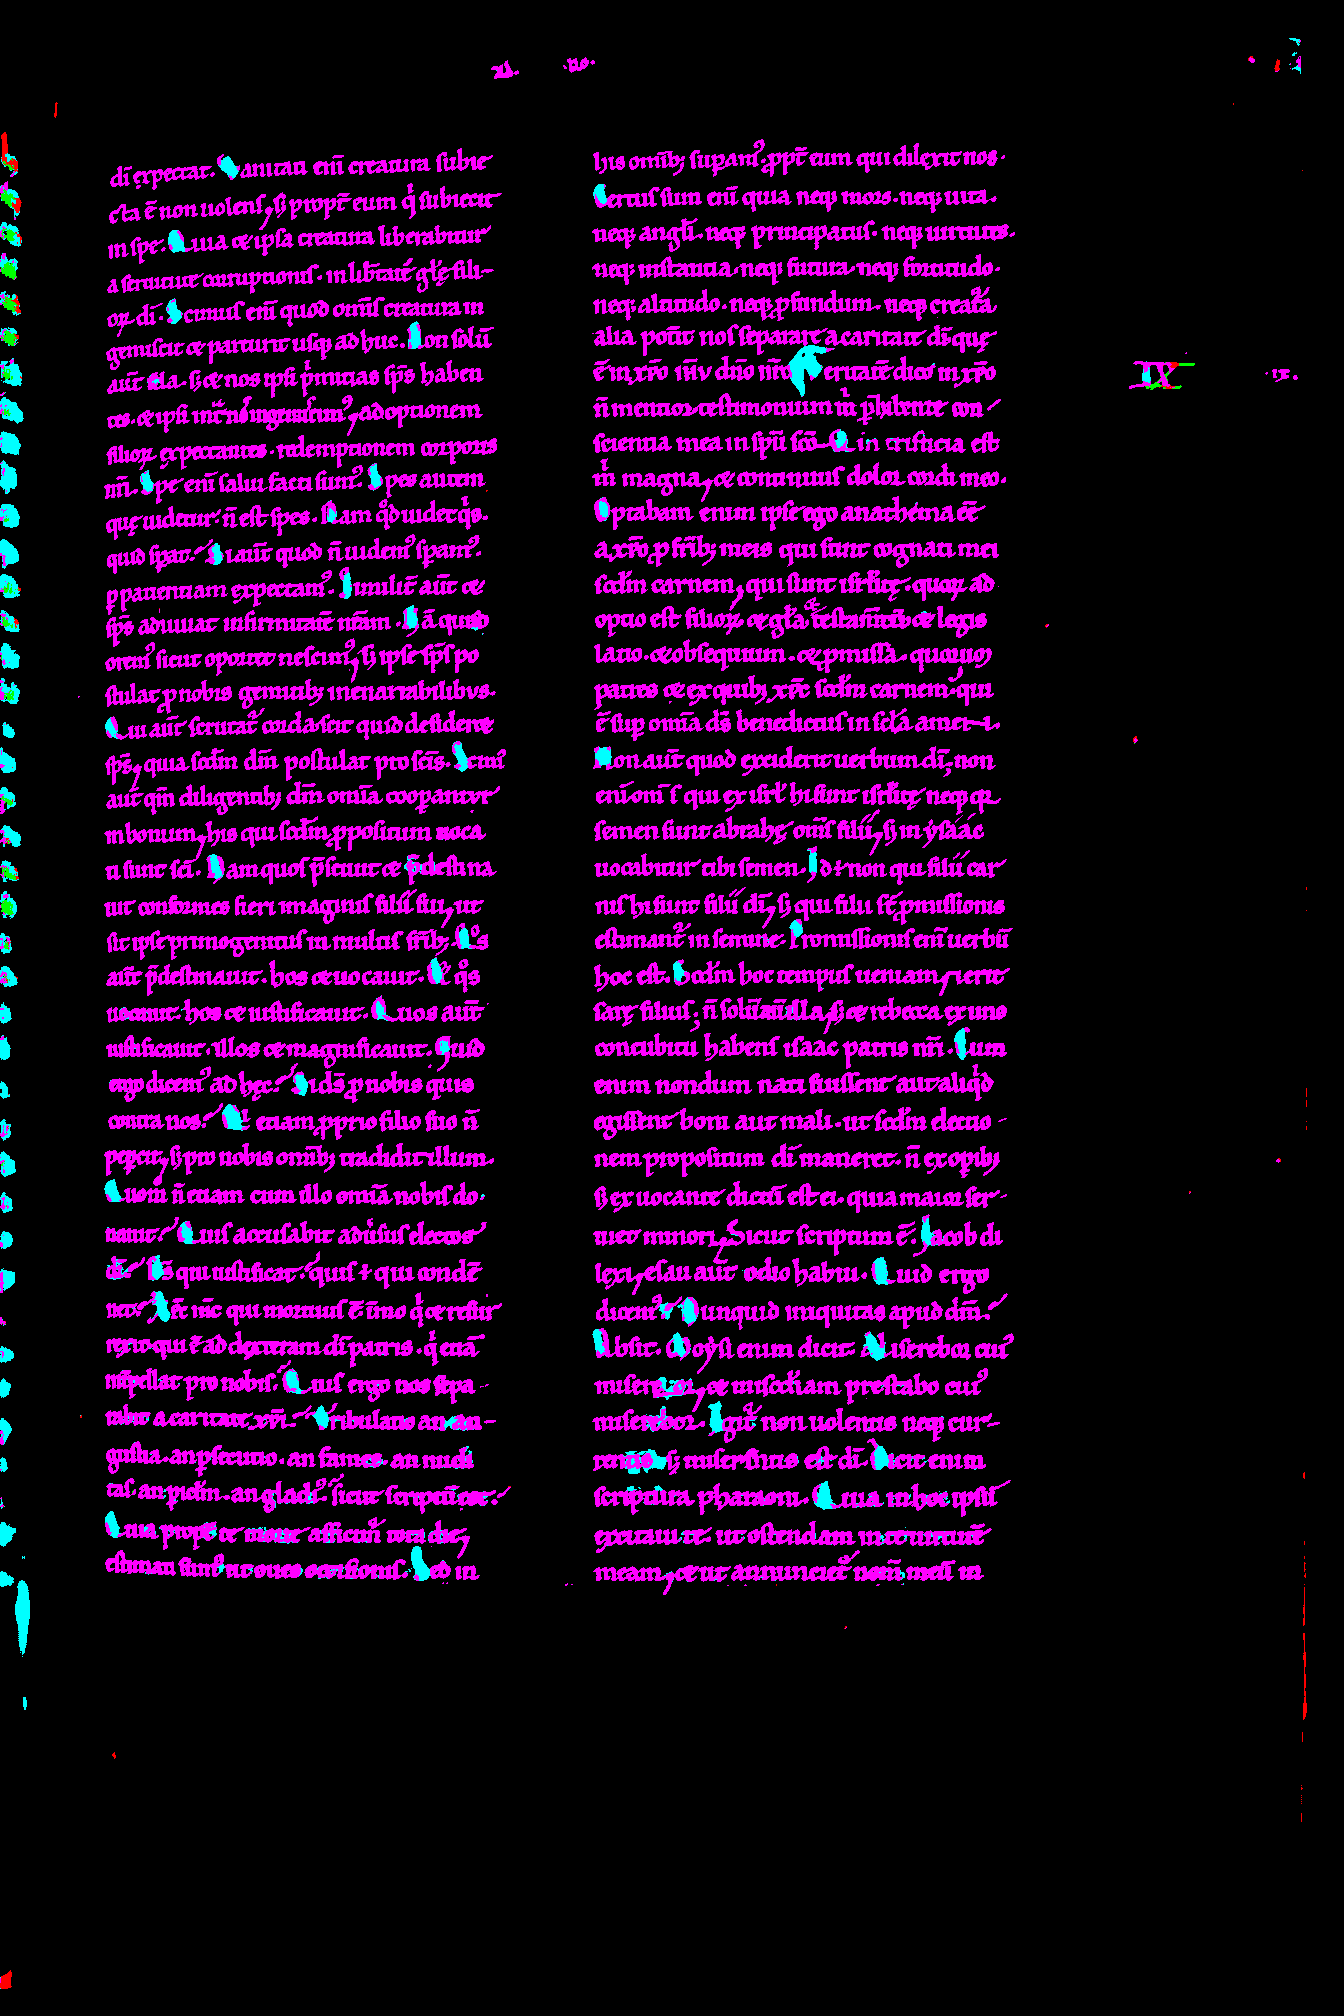 di̅ expectat. Vanitati eni̅ creatura subie
cta e̅ non uolens, sꝫ propt̅ eum q̍ subiecit
in spe. Quia ⁊ ipsa creatura liberabitur
a seruitute corruptionis. in lib̅tate̅ gl̅ę fili-
oꝝ di̅. Scimus eni̅ quod om̅s creatura in
gemiscit ⁊ parturit usq; ad huc. Non solu̅
aut̅ illa. sꝫ ⁊ nos ipsi p̍mitias sp̅s haben
tes. ⁊ ipsi int̅ nos gemimus, adoptionem
filioꝝ expectantes. redemptionem corporis
nr̅i. Spe eni̅ salui facti sum᷒. Spes autem
quę uidetur. n̅ est spes. Nam q̊d uidet q̍s.
quid sp̅at. Si aut̅ quod n̅ uidem᷒ sp̅am᷒.
ꝑ patientiam expectam᷒. Similit̅ aut̅ ⁊
sp̅s adiuuat infirmitate̅ nr̅am. Na̅ quid
orem᷒ sicut oportet nescim᷒, sꝫ ipse sp̅s po
stulat ꝓ nobis gemitib; inenarrabilibus.
Qui aut̅ scrutat᷑ corda. scit quid desideret
sp̅s, quia scd̅m dm̅ postulat pro sc̅is. Scim᷒
aut̅ qm̅ diligentib; dm̅ omia̅ cooꝑantur
in bonum, his qui scd̅m ꝓpositum uoca
ti sunt sc̅i. Nam quos p̅sciuit ⁊ p̅destina
uit conformes fieri imaginis filii sui, ut
sit ipse primogenitus in multis fr̅ib;. Q̊s
aut̅ p̅destinauit. hos ⁊ uocauit. Et q̊s
uocauit. hos ⁊ iustificauit. Quos aut̅
iustificauit. illos ⁊ magnificauit. Quid
ergo dicem᷒ ad hęc. Si ds̅ ꝓ nobis quis
contra nos. Qui etiam ꝓprio filio suo n̅
peꝑcit, sꝫ pro nobis omib; tradidit illum.
Quom̊ n̅ etiam cum illo omia̅ nobis do
nauit. Quis accusabit adu̍sus electos
di̅. Ds̅ qui iustificat. quis ÷ qui conde̅
net. Xp̅c ih̅c qui mortuus e̅. imo q̍ ⁊ resur
rexit. qui e̅ ad dexteram di̅ patris. q̍ etia̅
int̅pellat pro nobis. Quis ergo nos sepa-
rabit a caritate xp̅i. Tribulatio an an-
gustia. an ꝑsecutio. an fames. an nudi
tas. an pic̅lm. an gladi᷒. sicut scriptu̅ est.
Quia propt̅ te morte afficim᷑ tota die,
estimati sum᷒ ut oues occisionis. Sed in
his omib; suꝑam᷒ ꝓpt̅ eum qui dilexit nos.
Certus sum eni̅ quia neq; mors. neq; uita.
neq; angl̅i. neq; principatus. neq; uirtutes.
neq; instantia. neq; futura. neq; fortitudo.
neq; altitudo. neq; ꝓfundum. neq; creat᷑a
alia pot̅it nos separare a caritate di̅. quę
e̅ in xp̅o ih̅u dn̅o nr̅o. Veritate̅ dico in xp̅o
n̅ mentior. testimonium m̍ ꝑhibente con
scientia mea in spu̅ sc̅o. Qm̅ tristicia est
m̍ magna, ⁊ continuus dolor cordi meo.
Optabam enim ipse ego anathema ee̅
a xp̅o, ꝓ fr̅ib; meis qui sunt cognati mei
scd̅m carnem, qui sunt isrl̅itę. quoꝝ ad
optio est filioꝝ, ⁊ gl̅a, ⁊ testam̅tu̅ ⁊ legis
latio. ⁊ obsequium. ⁊ ꝓmissa. quorum
patres ⁊ ex quib; xp̅c scd̅m carnem. qui
e̅ suꝑ omia̅ ds̅ benedictus in sc̅la amen.
Non aut̅ quod exciderit uerbum di̅, non
eni̅ om̅s qui ex isrl̅ hi sunt isrl̅itę neq; q̍
semen sunt abrahę om̅s filii, sꝫ in ysaac
uocabitur tibi semen. Id ÷ non qui filii car
nis hi sunt filii di̅, sꝫ qui filii st̅ ꝓmissionis
estimant᷑ in semine. Promissionis eni̅ uerbu̅
hoc est. Scd̅m hoc tempus ueniam, ⁊ erit
sarę filius, n̅ solu̅ aut̅ illa, sꝫ ⁊ rebecca ex uno
concubitu habens isaac patris nr̅i. Cum
enim nondum nati fuissent aut aliq̍d
egissent boni aut mali. ut scd̅m electio-
nem propositum di̅ maneret. n̅ ex oꝑib;
sꝫ ex uocante dictu̅ est ei. quia maior ser-
uiet minori, Sicut scriptum e̅. Jacob di
lexi, esau aut̅ odio habui. Quid ergo
dicem᷒. Nunquid iniquitas apud dm̅.
Absit. Moysi enim dicit. Miserebor cui᷒
misereor, ⁊ misc̅diam prestabo cui᷒
miserebor. Igit᷑ non uolentis neq; cur-
rentis sꝫ miserentis est di̅. Dicit enim
scriptura pharaoni. Quia in hoc ipsu̅
excitaui te. ut ostendam in te uirtute̅
meam, ⁊ ut annunciet᷑ nom̅ meu̅ in
IX
.ix.